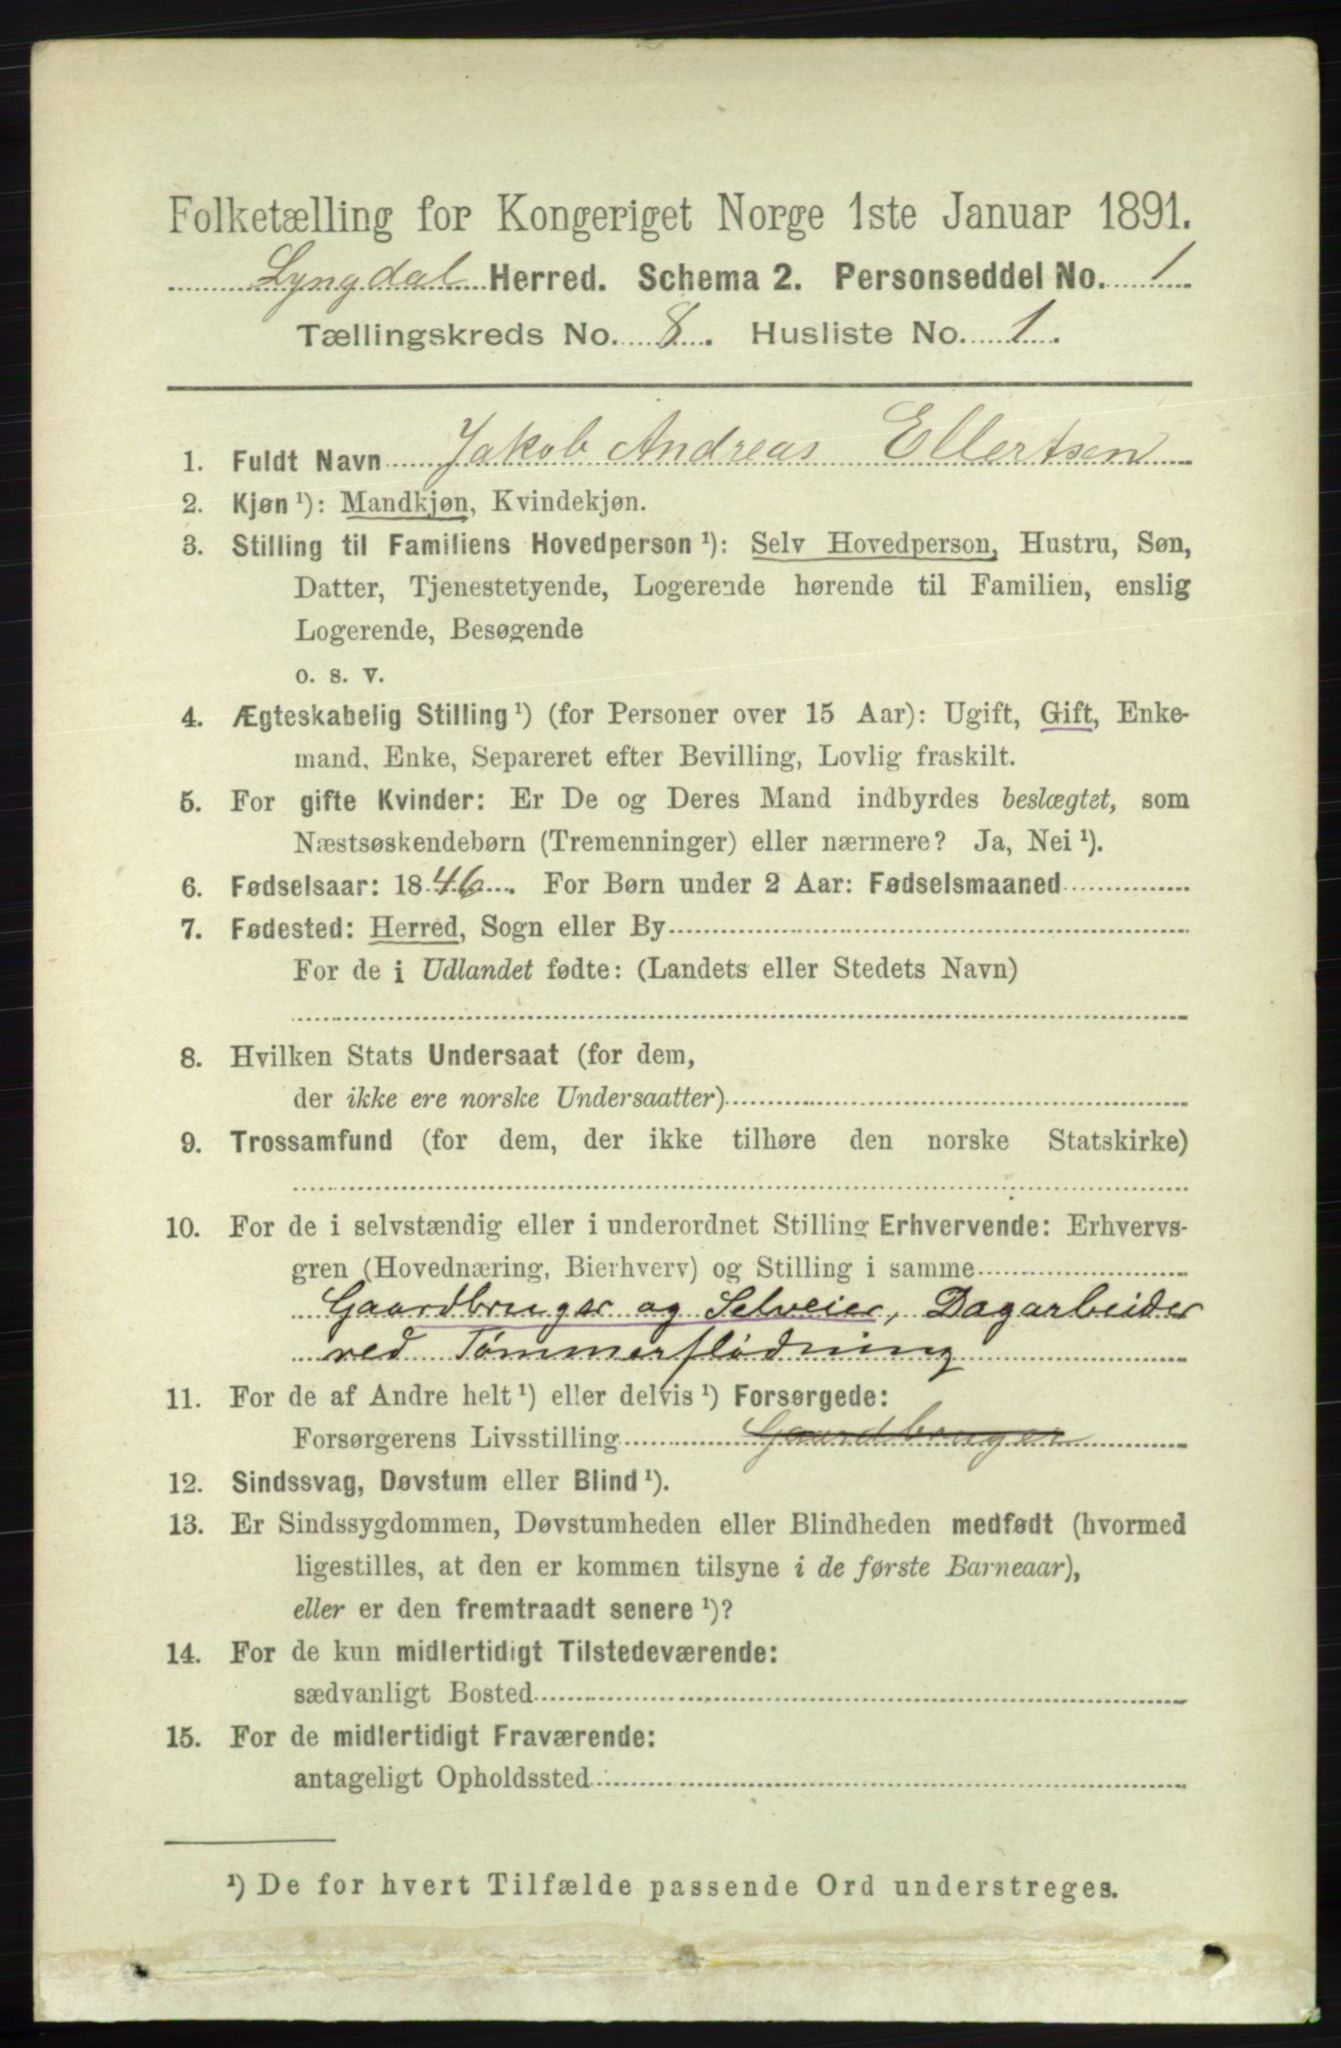 Folketælling for Kongeriget Norge 1ste Januar 1891.
Lyngdal Herred. Schema 2. Personseddel No. 1
Tællingskreds No. 8. Husliste No. 1.
1. Fuldt Navn Jakob Andreas Ellertsen
2. Kjøn ¹): Mandkjøn, Kvindekjøn.
3. Stilling til Familiens Hovedperson ¹): Selv Hovedperson, Hustru, Søn,
Datter, Tjenestetyende, Logerende hørende til Familien, enslig
Logerende, Besøgende
o. s. v.
4. Ægteskabelig Stilling ¹) (for Personer over 15 Aar): Ugift, Gift, Enke-
mand, Enke, Separeret efter Bevilling, Lovlig fraskilt.
5. For gifte Kvinder: Er De og Deres Mand indbyrdes beslægtet, som
Næstsøskendebørn (Tremenninger) eller nærmere? Ja, Nei ¹).
6. Fødselsaar: 1846. For Børn under 2 Aar: Fødselsmaaned
7. Fødested: Herred, Sogn eller By
For de i Udlandet fødte: (Landets eller Stedets Navn)
8. Hvilken Stats Undersaat (for dem,
der ikke ere norske Undersaatter)
9. Trossamfund (for dem, der ikke tilhøre den norske Statskirke)
10. For de i selvstændig eller i underordnet Stilling Erhvervende: Erhvervs-
gren (Hovednæring, Bierhverv) og Stilling i samme
Gaardbruger og Selveier, Dagarbeider
ved Tømmerflødning
11. For de af Andre helt ¹) eller delvis ¹) Forsørgede:
Forsørgerens Livsstilling Gaardbruger
12. Sindssvag, Døvstum eller Blind ¹).
13. Er Sindssygdommen, Døvstumheden eller Blindheden medfødt (hvormed
ligestilles, at den er kommen tilsyne i de første Barneaar),
eller er den fremtraadt senere ¹)?
14. For de kun midlertidigt Tilstedeværende:
sædvanligt Bosted
15. For de midlertidigt Fraværende:
antageligt Opholdssted
¹) De for hvert Tilfælde passende Ord understreges.